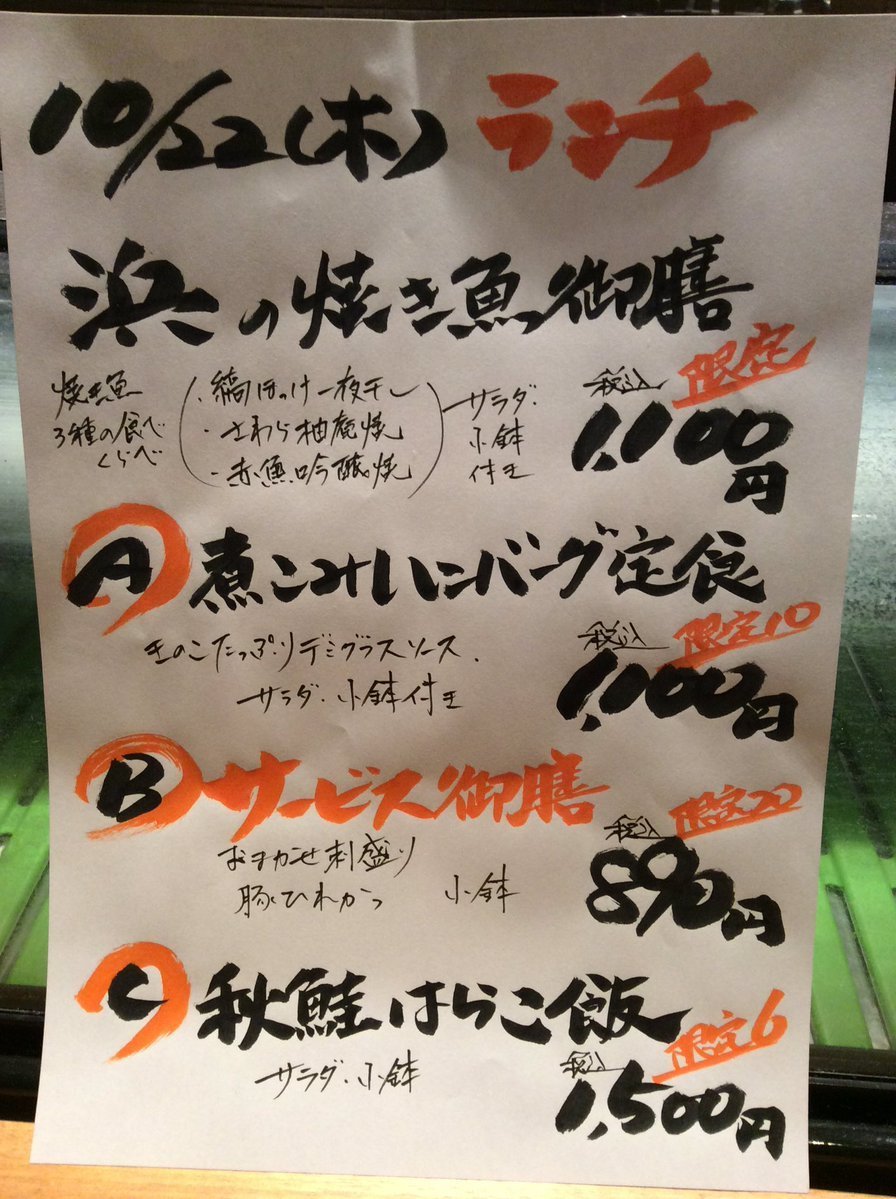 10/22(木) ランチ
浜の焼き魚御膳
限定
焼き魚
3種の食べ
くらべ
・縞ほっけ一夜干し
・さわら柚庵焼
・赤魚吟醸焼
サラダ・
小鉢
付き
税込
1,100円
A 煮こみハンバーグ定食
限定10
きのこたっぷりデミグラスソース.
サラダ・小鉢付き
税込
1,000円
B サービス御膳
限定20
おまかせ刺盛り
豚ひれかつ 小鉢
税込
890円
C 秋鮭はらこ飯
限定6
サラダ・小鉢
税込
1,500円